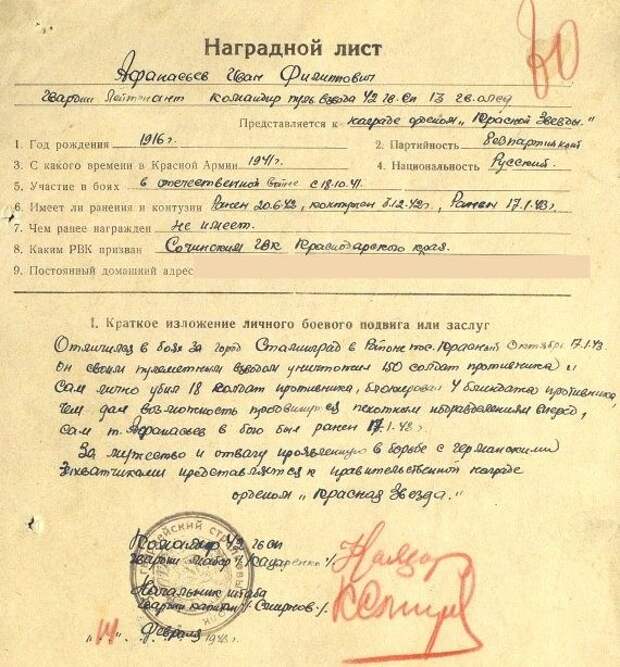 80
Наградной лист
Афанасьев Иван Филиппович
Гвардии Лейтенант командир пуль взвода 42 гв.сп 13 гв.олсд
Представляется к награде орденом „Красной Звезды."
1. Год рождения 1916 г. 2. Партийность беспартийный
3. С какого времени в Красной Армии 1941 г. 4. Национальность Русский.
5. Участие в боях в отечественной войне с 18.10.41.
6. Имеет ли ранения и контузии Ранен 20.6.42, контужен 6.12.42 г, Ранен 17.1.43 г.
7. Чем ранее награжден не имеет.
8. Каким РВК призван Сочинским ГВК Краснодарского края.
9. Постоянный домашний адрес
I. Краткое изложение личного боевого подвига или заслуг
Отличился в боях за город Сталинград в Районе пос. Красный Октябрь 17.1.43
он своим пулеметным взводом уничтожил 150 солдат противника
Сам лично убил 18 солдат противника, блокировал 4 блиндажа противника,
чем дал возможность продвинуться пехотным подразделениям вперед,
сам т. Афанасьев в бою был ранен 17.1.43 г.
За мужество и отвагу проявленную в борьбе с германскими
захватчиками представляется к правительственной награде
орденом „Красная Звезда."
Командир 42 гв сп
Гвардии майор
Начальник штаба
Гвардии капитан /Смирнов/
„14" Февраля 1943 г.